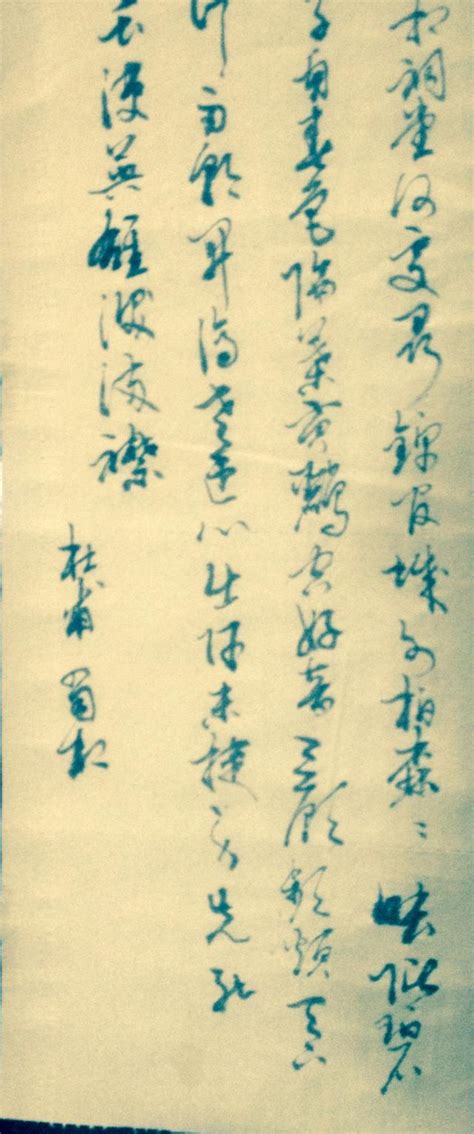 相祠堂何處尋錦官城外柏森〻映階碧
草自春色隔葉黃鸝空好音三顧頻煩天下
計兩朝開濟老臣心出師未捷身先死
長使英雄淚滿襟
杜甫 蜀相